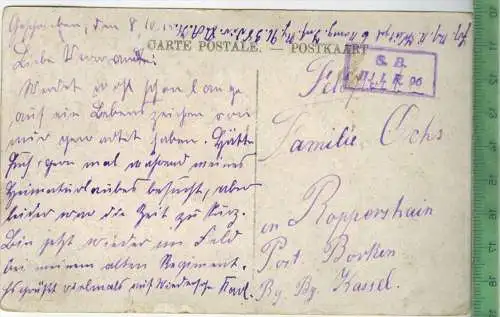 Geschrieben, den 8.
CARTE POSTALE. — POSTKAART
S. B.
Liebe Verwandte!
Werdet wohl schon lange
auf ein Lebenszeichen von
mir gewartet haben. Hätte
Euch gern mal während meines
Heimaturlaubes besucht, aber
leider war die Zeit zu kurz.
Bin jetzt wieder im Feld
bei meinem alten Regiment.
Es grüßt vielmals auf Wiedersehn Karl.
Feldpost
Familie Ochs
in Roppershain
Post. Borken
Bz. Kassel.